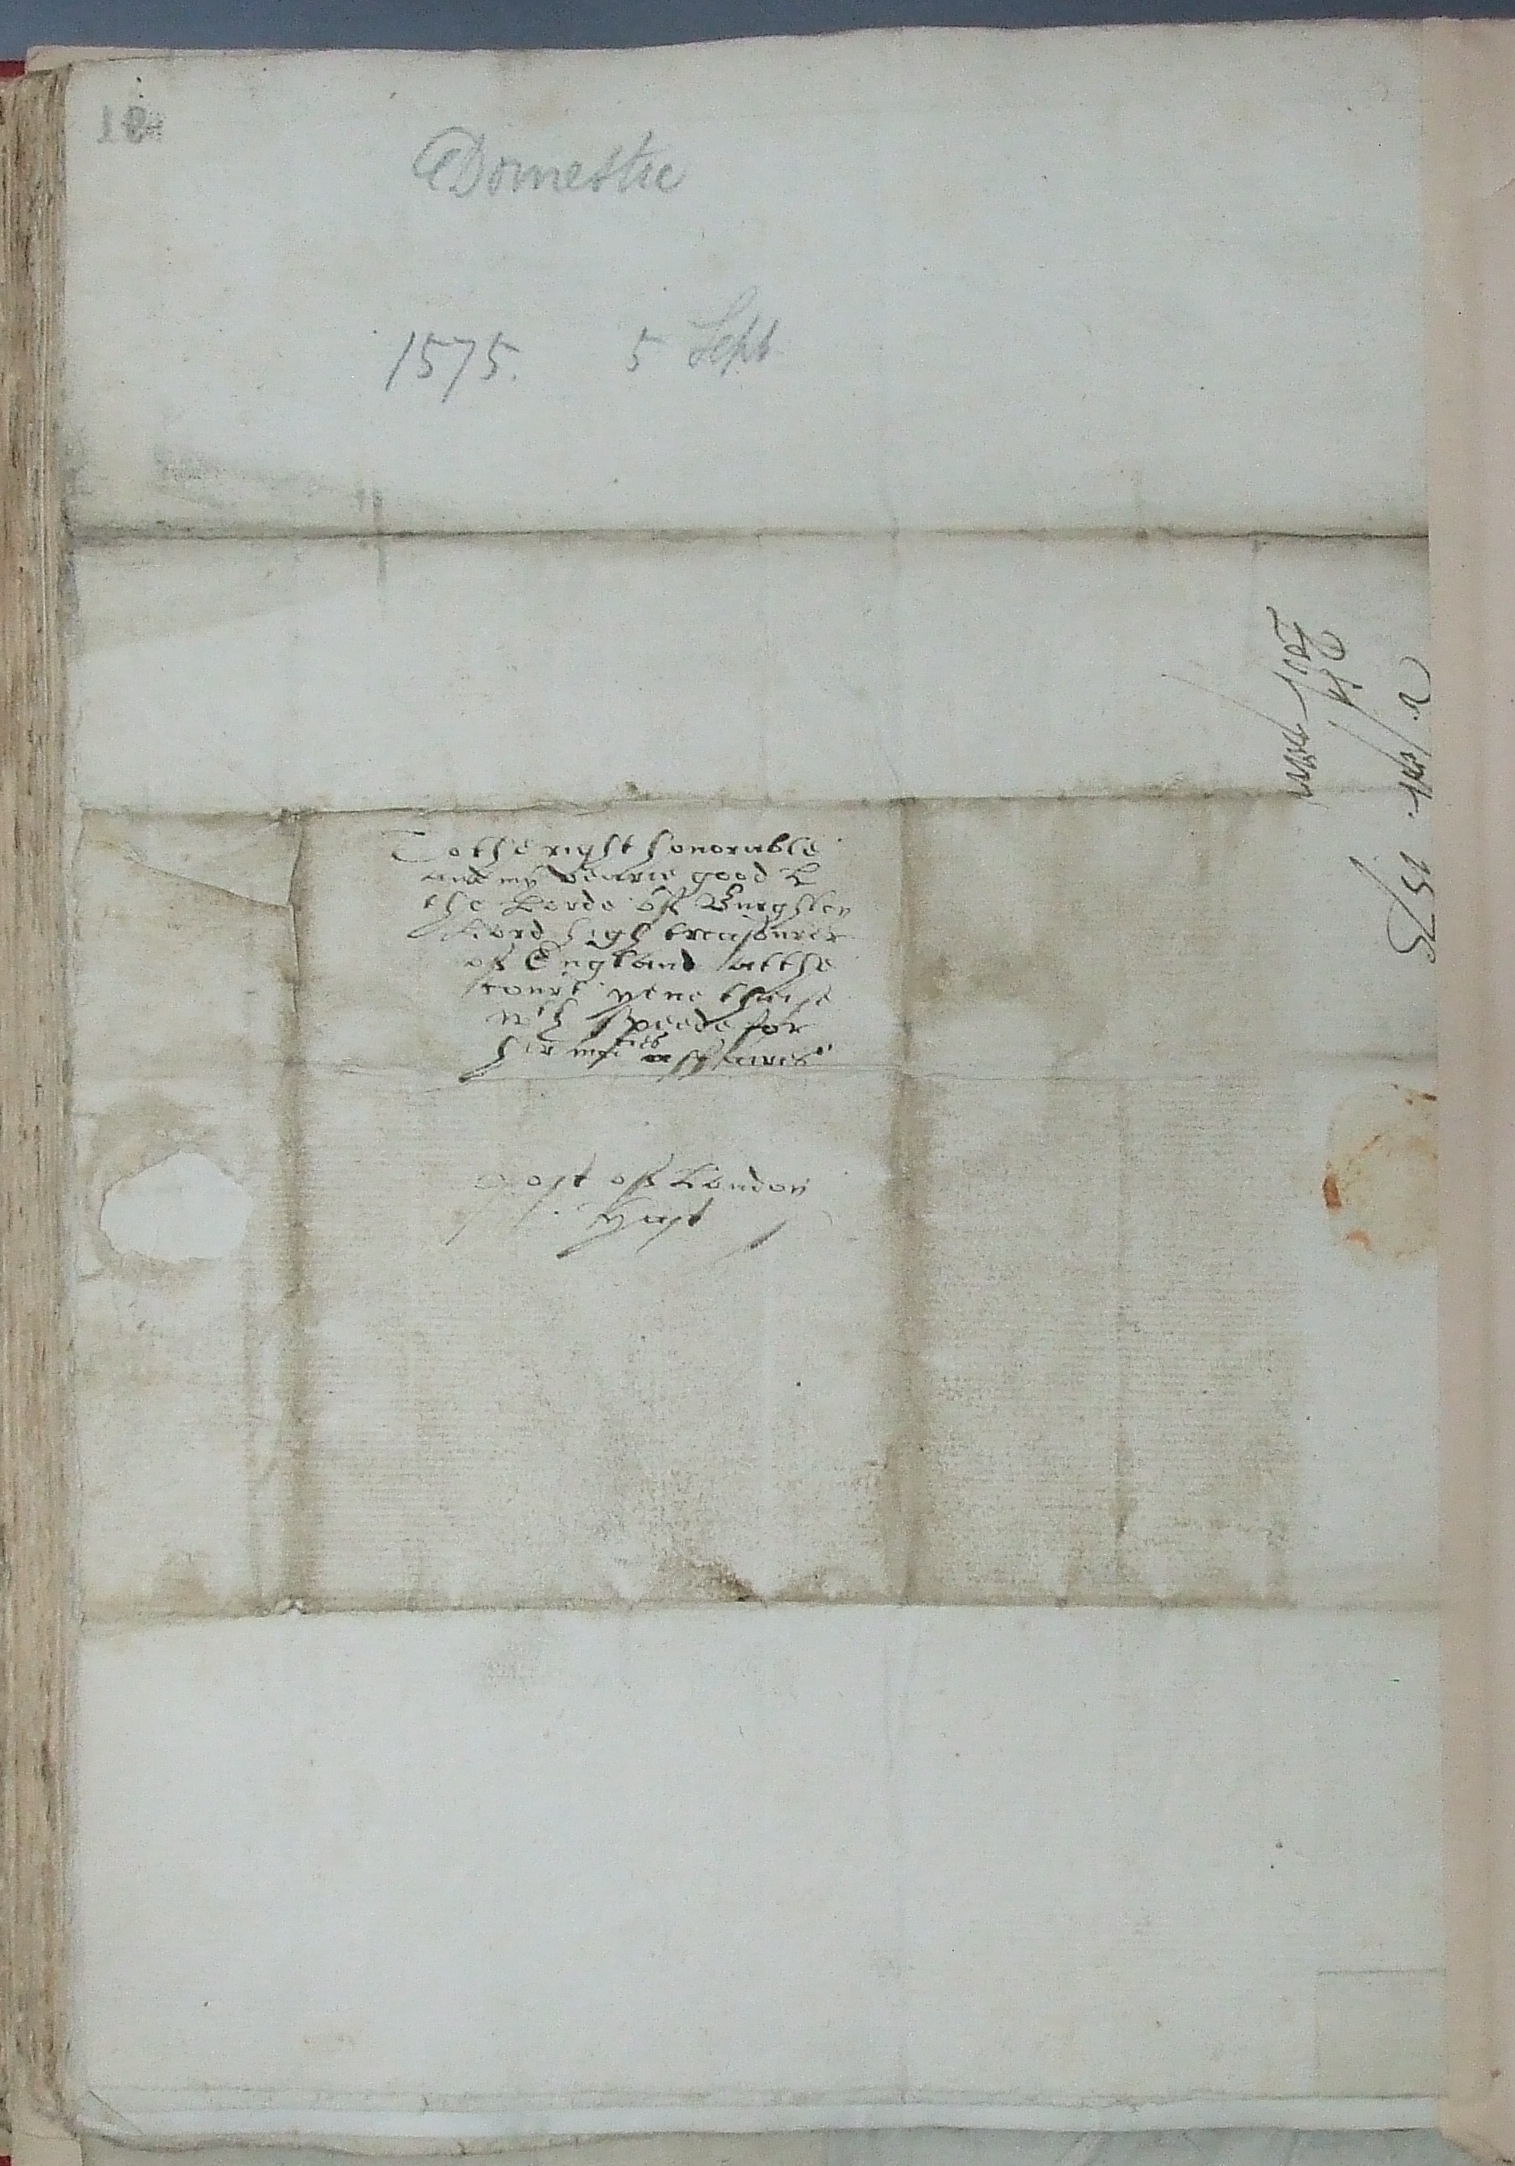 Domestic
1575. 5 Sept
To the right honorable
and my vearie good L
the Lorde off Burghley
Lord high treasourer
off England att the
court yeue thaise
wth speede for
hir maties affaires
post off London
hast
v. Sept. 1575